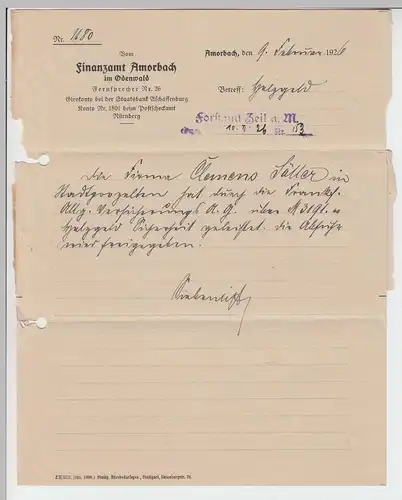 Nr. 1680
Vom
Finanzamt Amorbach
im Odenwald
Fernsprecher Nr. 26
Girokonto bei der Staatsbank Aschaffenburg
Konto Nr. 1801 beim Postscheckamt
Nürnberg
Amorbach, den 9. Februar 1926
Betreff: Holzgeld
Forstamt Zeil a. M.
10. II. 26 Nr. 153
Die Firma Clemens Söller in
Stadtprozelten hat durch die Frankf.
Allg. Versicherungs A. G. über M 3191.
Holzgeld Sicherheit geleistet. Die Abfuhr
wird freigegeben.